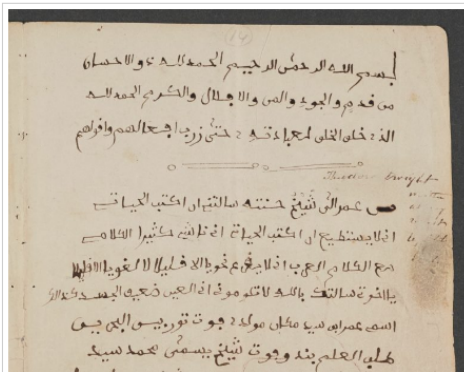 (14)
بسم الله الرحمن الرحيم الحمد لله ذو الاحسان
من قديم والجود والمن والاجلال والكرم الحمد لله
الذي خلق الخلق لعبادته حتى افعالهم واقولهم
brought
من عمر الى شيخ حنته سالتني ان اكتب الحياتي
انا لا يستطيع ان اكتب الحياة انا ناسي كثيرا الكلامي
مع الكلام العرب انا لا نحويا الا قليلا لا لغويا الا قليلا
يا اخوي سالتك بالله لا تلوموني انا العين ضعيف الجسد كذلك
اسمي عمر ابن سيد مكان مولد فوت تور بين البحرين
طلب العلم بند وفوت شيخ يسمى محمد سيد